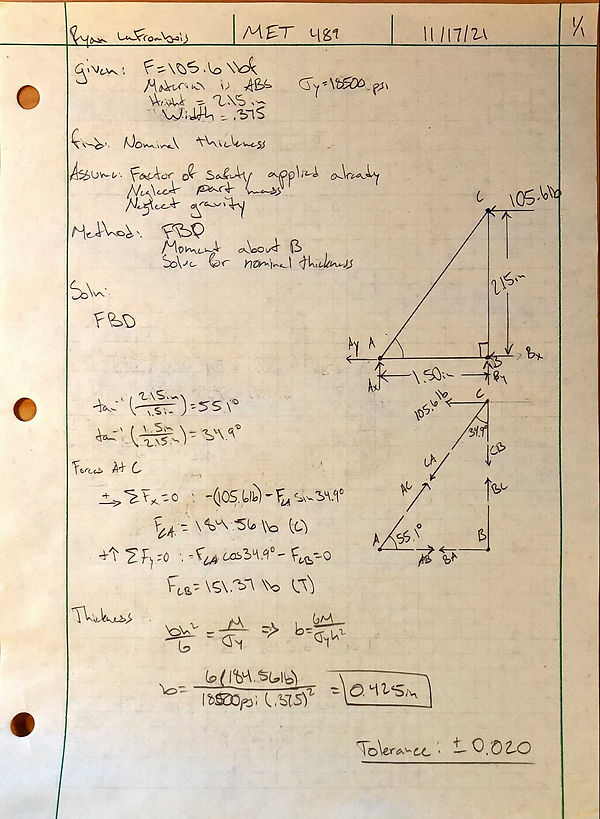 Ryan LaFrombois
MET 489
11/17/21
1/1
Given: F=105.6 lbf
Material is ABS σy=18500 psi
Height = 2.15 in
Width = .375
Find: Nominal thickness
Assume: Factor of safety applied already
Neglect part mass
Neglect gravity
Method: FBD
Moment about B
Solve for nominal thickness
Soln:
FBD
C 105.6lb
2.15in
Ay A B Bx
Ax 1.50in By
tan⁻¹ (2.15in/1.5in) = 55.1°
tan⁻¹ (1.5in/2.15in) = 34.9°
105.6lb C
34.9°
CA CB
AC BC
A 55.1° B
AB BA
Forces At C
+→ ΣFx=0 : -(105.6lb) - FCA sin 34.9°
FCA = 184.56 lb (C)
+↑ ΣFy=0 : -FCA cos 34.9° - FCB = 0
FCB = 151.37 lb (T)
Thickness
bh²/6 = M/σy => b = 6M/σyh²
b = 6(184.56lb)/18500psi (.375)² = 0.425in
Tolerance: ± 0.020